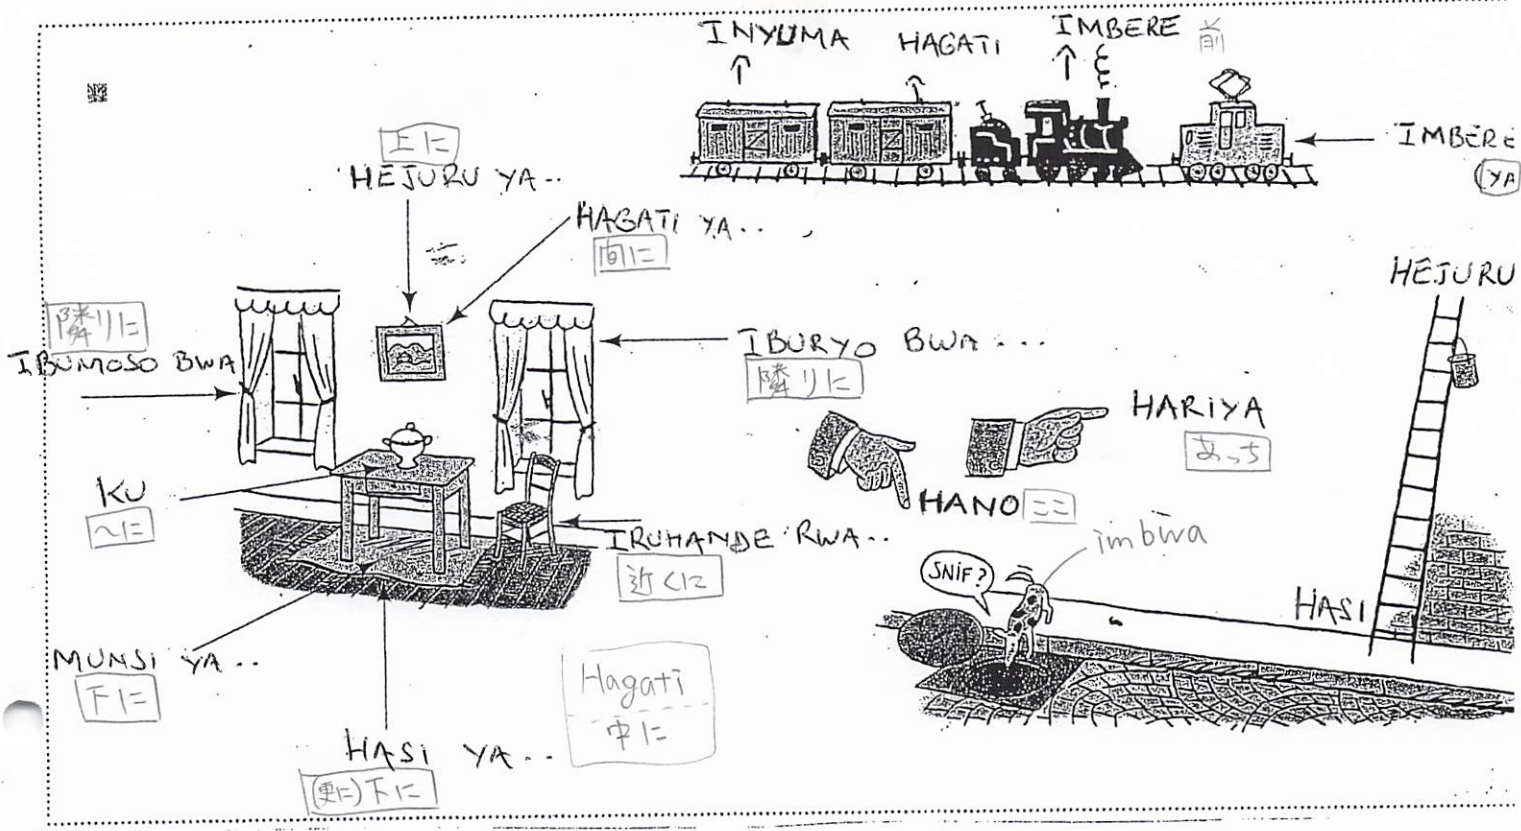 INYUMA
HAGATI
IMBERE 前
IMBERE
(YA
上に
HEJURU YA..
HAGATI YA..
間に
隣りに
IBUMOSO BWA
IBURYO BWA...
隣りに
HEJURU
HARIYA
あっち
HANO ここ
KU
〜に
IRUHANDE RWA..
近くに
imbwa
SNIF?
HASI
MUNSI YA..
下に
Hagati
中に
HASI YA..
(更に)下に